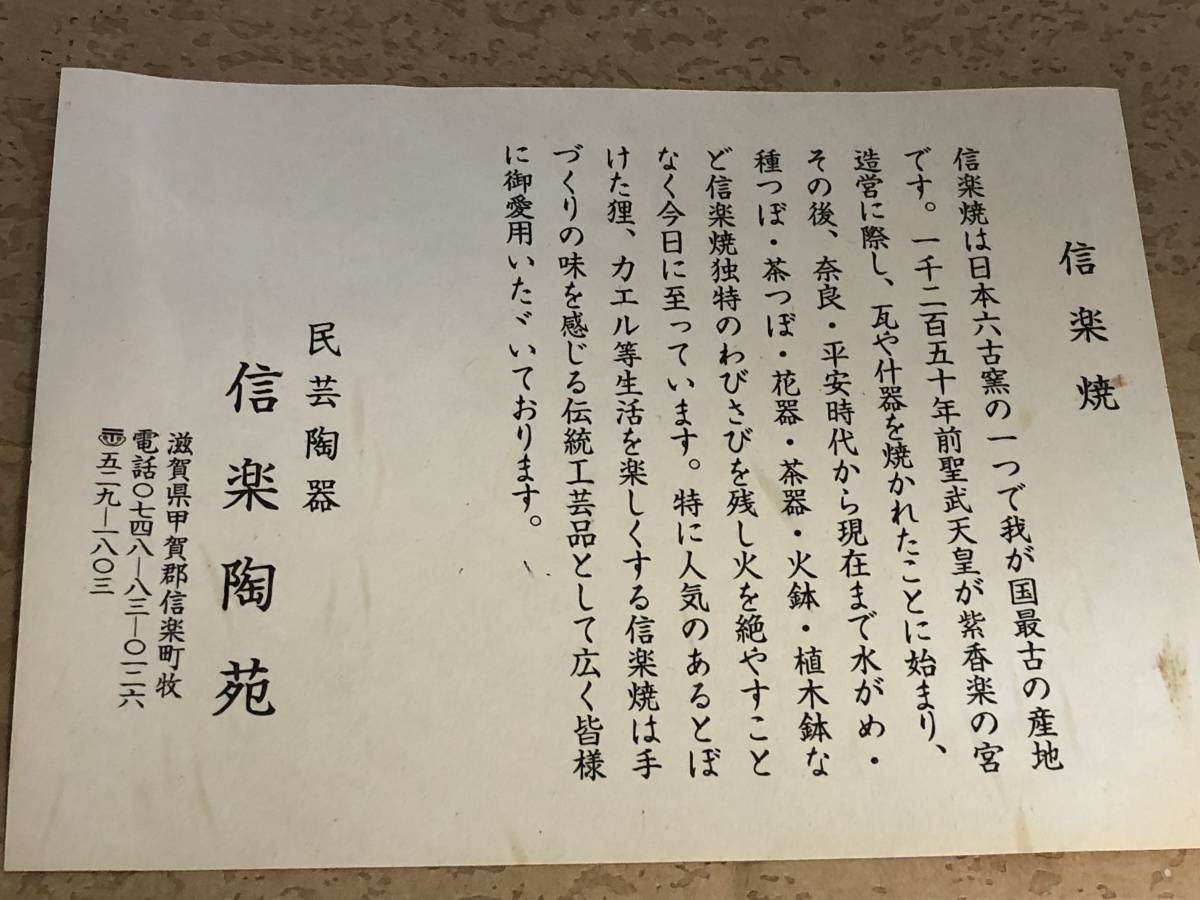 信楽焼
信楽焼は日本六古窯の一つで我が国最古の産地
です。一千二百五十年前聖武天皇が紫香楽の宮
造営に際し、瓦や什器を焼かれたことに始まり、
その後、奈良・平安時代から現在まで水がめ・
種つぼ・茶つぼ・花器・茶器・火鉢・植木鉢な
ど信楽焼独特のわびさびを残し火を絶やすこと
なく今日に至っています。特に人気のあるとぼ
けた狸、カエル等生活を楽しくする信楽焼は手
づくりの味を感じる伝統工芸品として広く皆様
に御愛用いたゞいております。
民芸陶器
信楽陶苑
滋賀県甲賀郡信楽町牧
電話〇七四八―八三―〇一二六
〒五二九―一八〇三